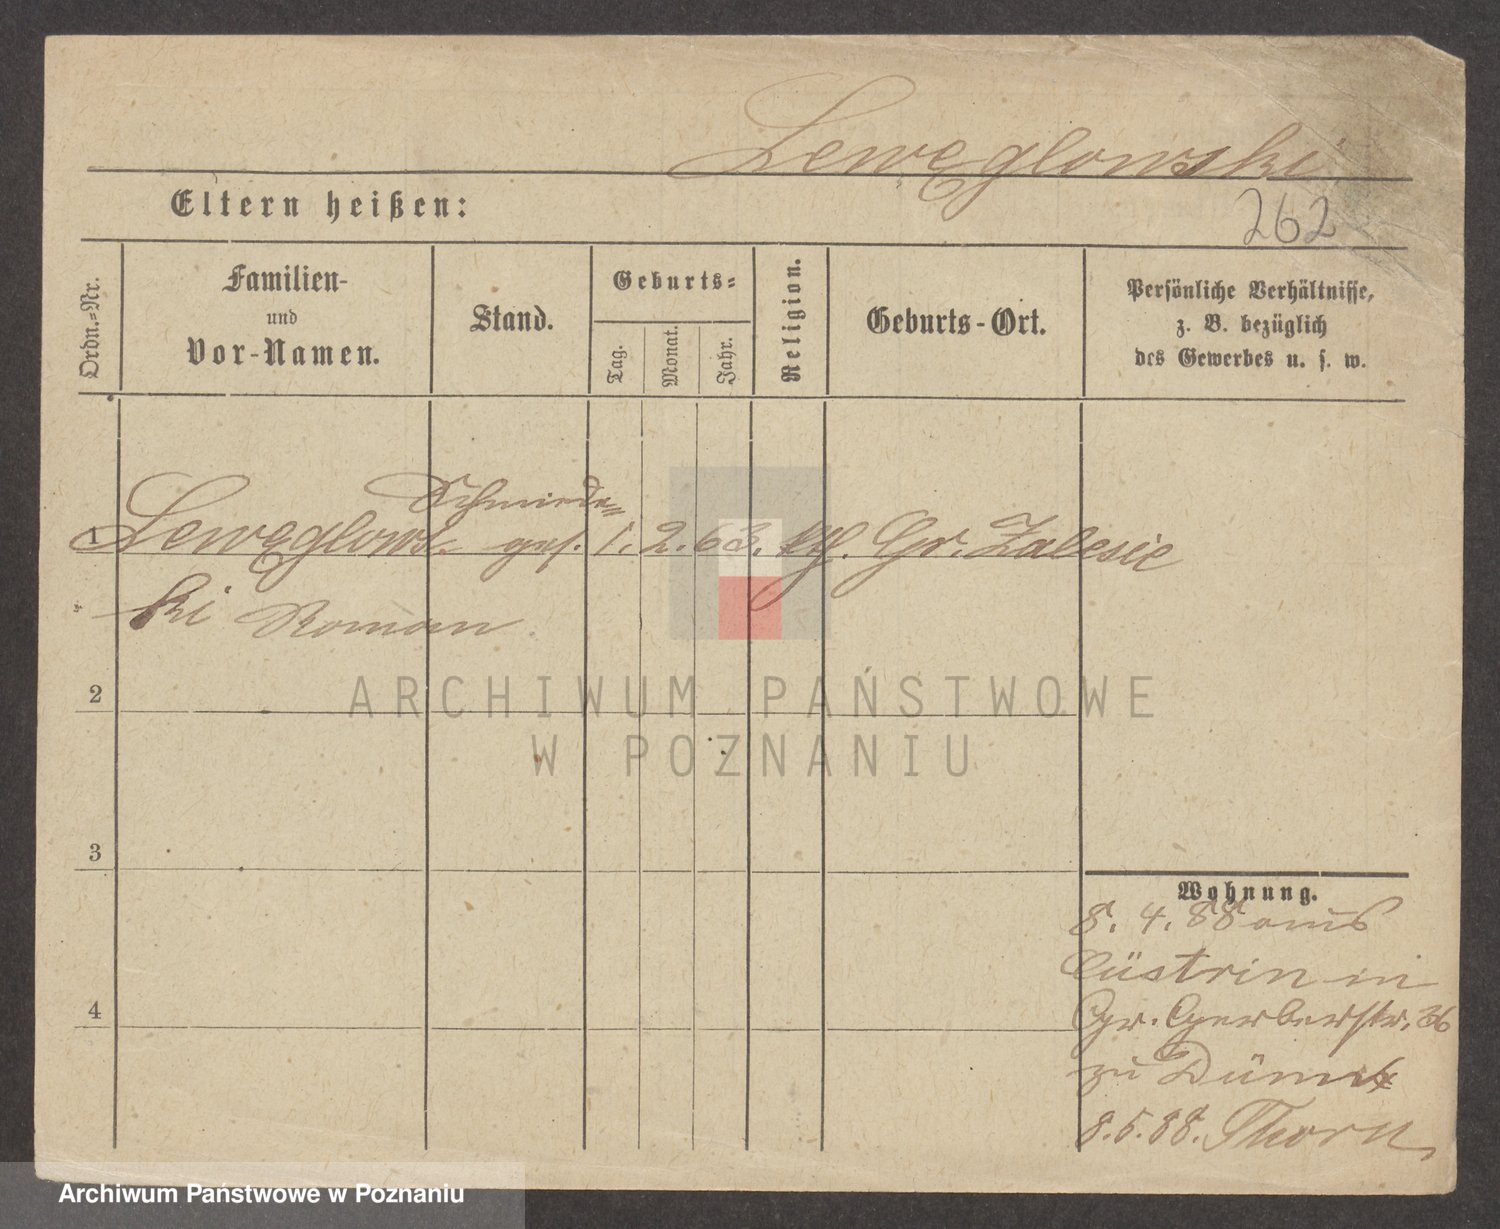 Lewęglowski
Eltern heißen:
262
Ordn.=Nr.
Familien-
und
Vor-Namen.
Stand.
Geburts=
Tag.
Monat.
Jahr.
Religion.
Geburts-Ort.
Persönliche Verhältnisse,
z. B. bezüglich
des Gewerbes u. s. w.
Schmiede=
1 Lewęglows- ges. 1. 2. 63. kth. Gr. Zalesie
ki Roman
2
ARCHIWUM PAŃSTWOWE
W POZNANIU
3
Wohnung.
8. 4. 88 aus
Cüstrin in
4
Gr. Gerberstr. 36
zu
8. 5. 88. Thorn
Archiwum Państwowe w Poznaniu